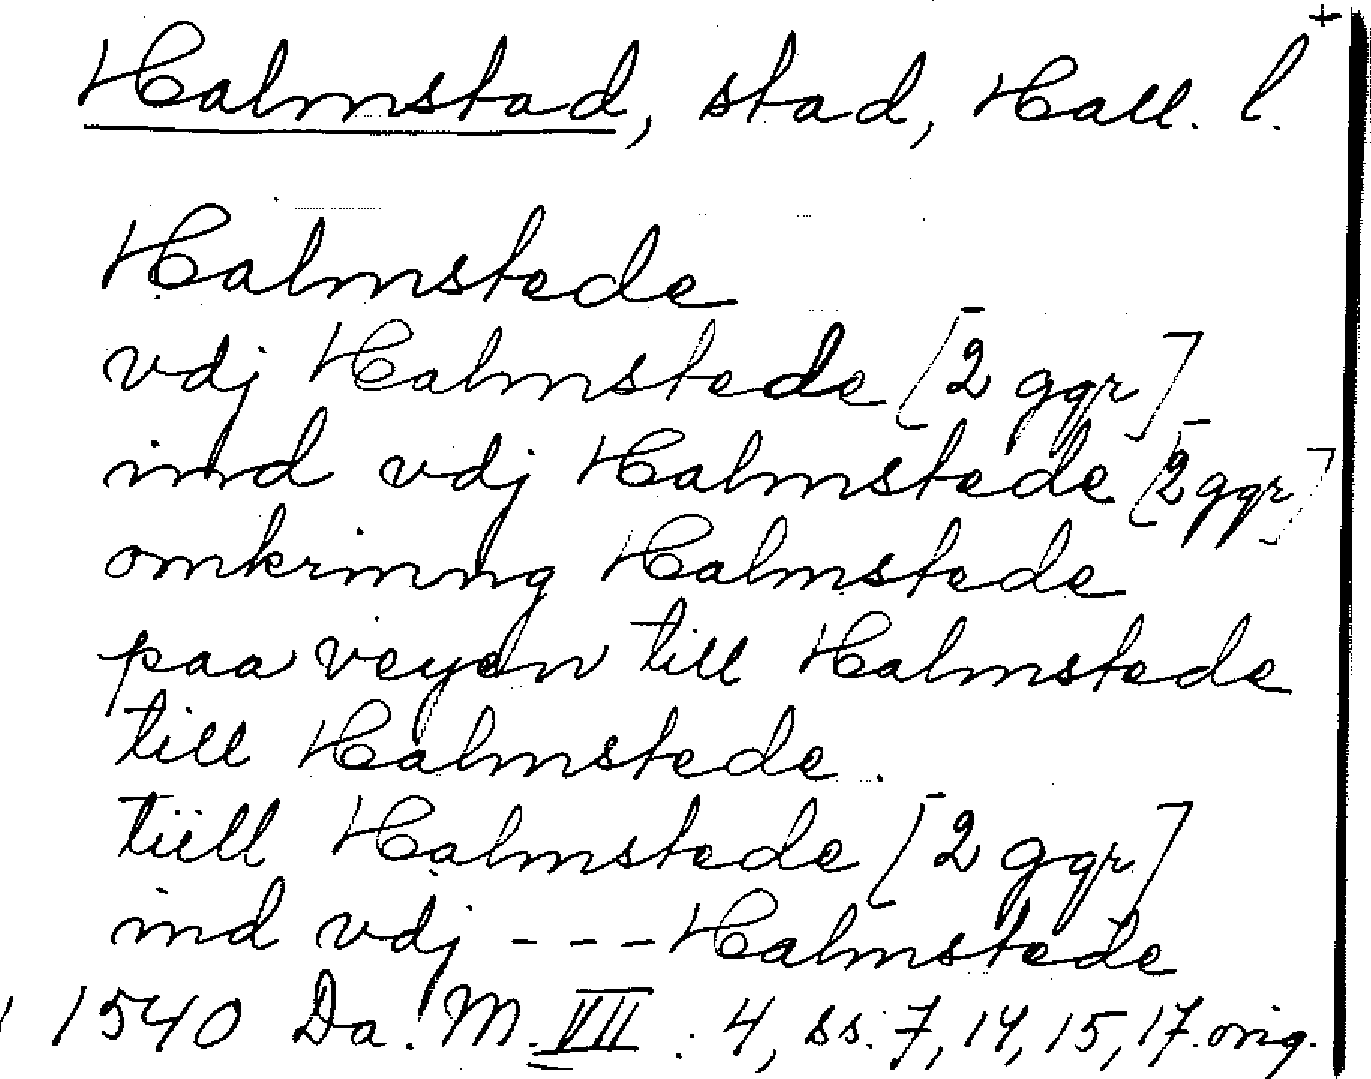 +
Halmstad, stad, Hall. l.
Halmstede
vdj Halmstede [2 ggr]
ind vdj Halmstede [2 ggr]
omkring Halmstede
paa veyen till Halmstede
till Halmstede.
tiill Halmstede [2 ggr]
ind vdj --- Halmstede
1540 Da. M. VII : 4, ss. 7, 14, 15, 17. orig.